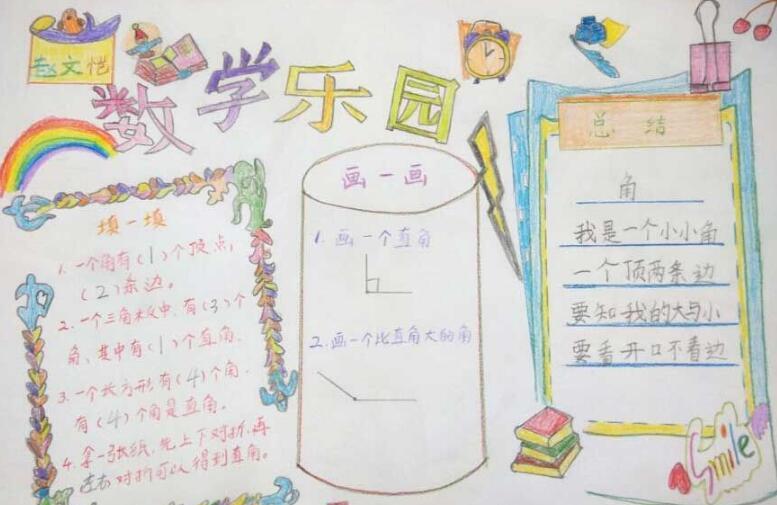 赵文恺
数学乐园
填一填
1. 一个角有(1)个顶点,
(2)条边。
2. 一个三角板中,有(3)个
角,其中有(1)个直角。
3. 一个长方形有(4)个角,
有(4)个角是直角。
4. 拿一张纸,先上下对折,再
左右对折可以得到直角。
画一画
1. 画一个直角
2. 画一个比直角大的角
总 结
角
我是一个小小角
一个顶两条边
要知我的大与小
要看开口不看边
Smile